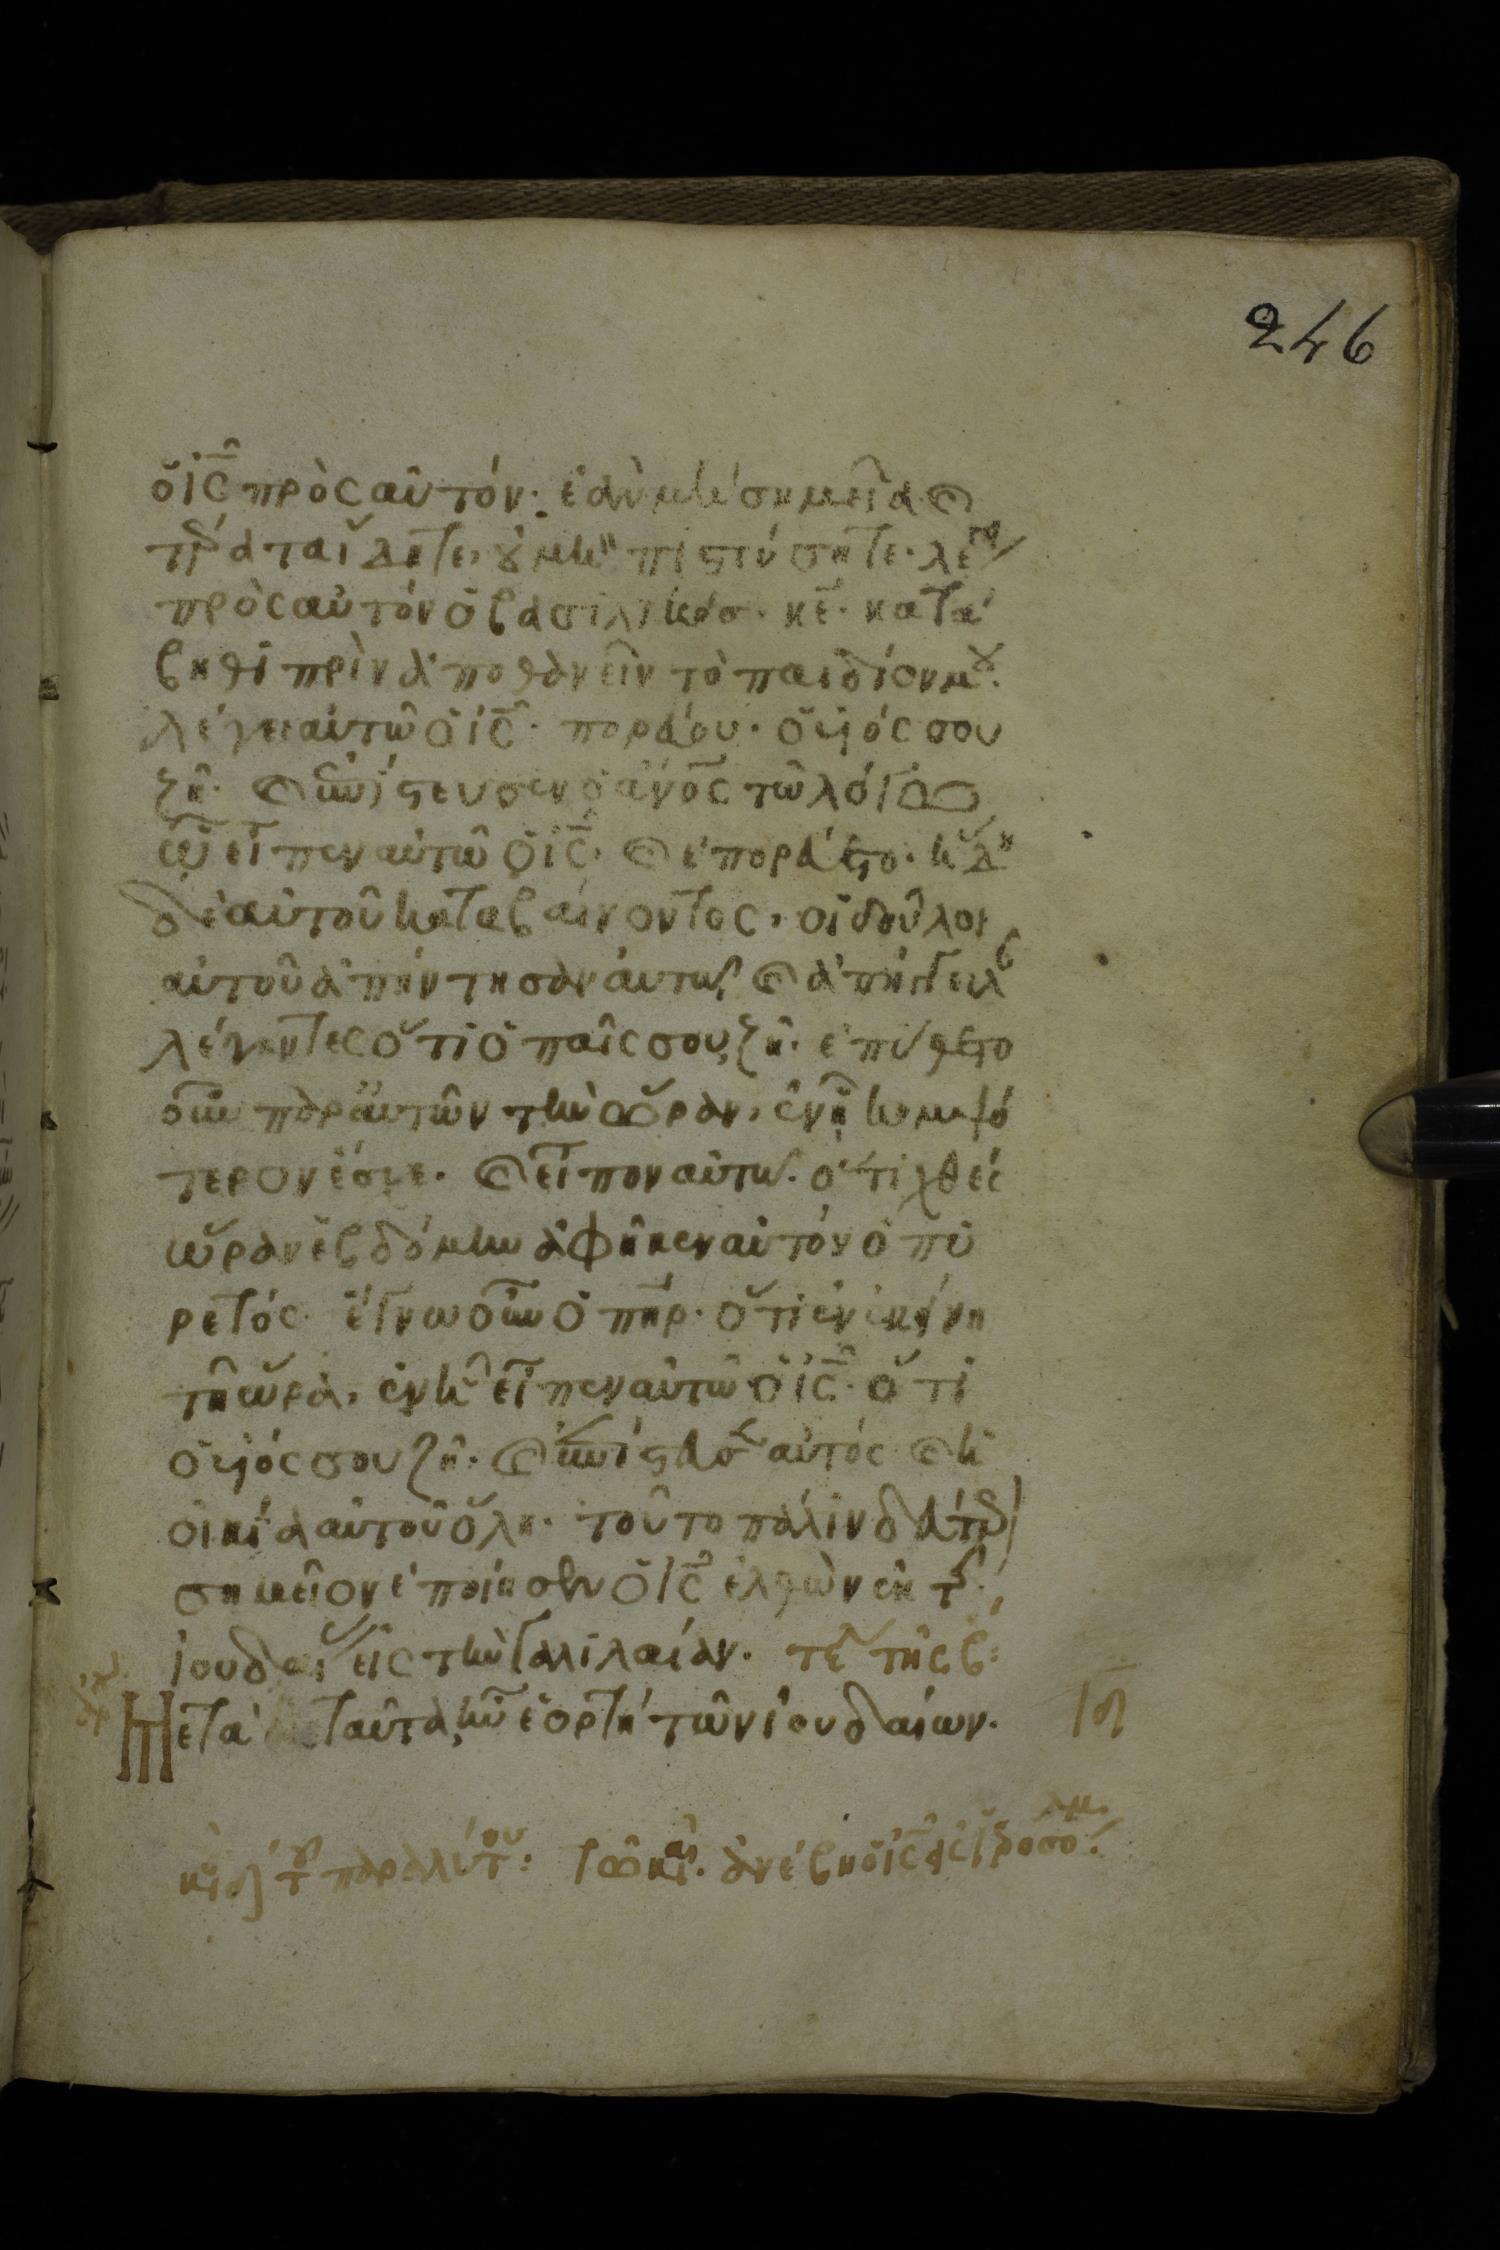 246
ὁ ις̅ πρὸς αὐτόν· ἐὰν μὴ σημεῖα καὶ
τέρατα ἴδητε, οὐ μὴ πιστεύσητε· λέγει
πρὸς αὐτὸν ὁ βασιλικός· κε̅· κατά
βηθι πρὶν ἀποθανεῖν τὸ παιδίον μου·
λέγει αὐτῶ ὁ ις̅· πορεύου· ὁ υἱός σου
ζῆ· καὶ ἐπίστευσεν ὁ ἄνο̅ς τῶ λόγω
ὧ εἶπεν αὐτῶ ὁ ις̅· καὶ ἐπορεύετο· ἤδη
δὲ αὐτοῦ καταβαίνοντος, οἱ δοῦλοι
αὐτοῦ ἀπήντησαν αὐτῶ καὶ ἀπήγγειλαν
λέγοντες ὅτι ὁ παῖς σου ζῆ· ἐπύθετο
οὖν παρ' αὐτῶν τὴν ὥραν, ἐν ἧ κομψό
τερον ἔσχε· καὶ εἶπον αὐτῶ· ὅτι χθὲς
ὥραν ἑβδόμην ἀφῆκεν αὐτὸν ὁ πυ
ρετός· ἔγνω οὖν ὁ πη̅ρ· ὅτι ἐν ἐκείνη
τῆ ὥρα, ἐν ἧ εἶπεν αὐτῶ ὁ ις̅· ὅτι
ὁ υἱός σου ζῆ· καὶ ἐπίστευσεν αὐτός καὶ ἡ
οἰκία αὐτοῦ ὅλη· τοῦτο πάλιν δεύτερον
σημεῖον ἐποίησεν ὁ ις̅ ἐλθὼν ἐκ τῆς
ἰουδαίας εἰς τὴν γαλιλαίαν· τέλος τῆς β:
Μετὰ ταῦτα, ἦν ἑορτὴ τῶν ἰουδαίων·
τοῦ παραλύτου: τῶ καιρῶ· ἀνέβη ὁ ις̅ εἰς ἱεροσόλυμα